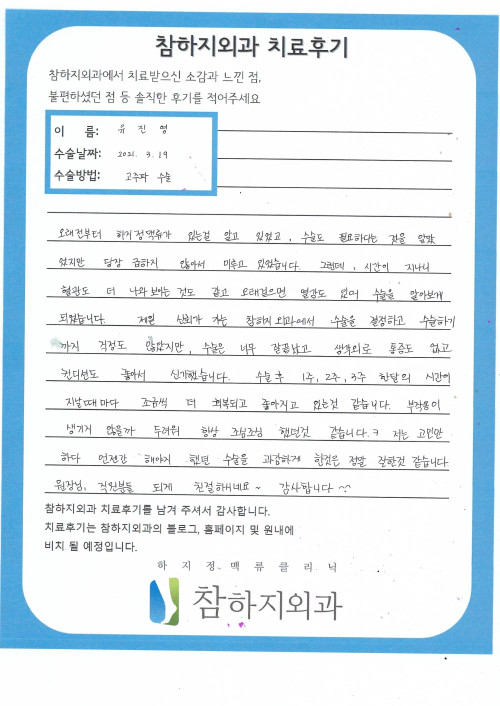 참하지외과 치료후기
참하지외과에서 치료받으신 소감과 느낀 점,
불편하셨던 점 등 솔직한 후기를 적어주세요
이 름: 유 진 영
수술날짜: 2021. 3. 19
수술방법: 고주파 수술
오래전부터 하지정맥류가 있는걸 알고 있었고, 수술도 필요하다는 것을 알았
었지만 당장 급하지 않아서 미루고 있었습니다. 그런데, 시간이 지나니
혈관도 더 나와 보이는 것도 같고 오래걸으면 열감도 있어 수술을 알아보게
되었습니다. 제일 신뢰가 가는 참하지외과에서 수술을 결정하고 수술하기
까지 걱정도 많았지만, 수술은 너무 잘끝났고 생각외로 통증도 없고
컨디션도 좋아서 신기했습니다. 수술 후 1주, 2주, 3주 한달의 시간이
지날때마다 조금씩 더 회복되고 좋아지고 있는것 같습니다. 부작용이
생기지 않을까 두려워 항상 조심조심 했던것 같습니다.ㅋ 저는 고민만
하다 언젠간 해야지 했던 수술을 과감하게 한것은 정말 잘한것 같습니다
원장님, 직원분들 되게 친절하시네요~ 감사합니다 ^^
참하지외과 치료후기를 남겨 주셔서 감사합니다.
치료후기는 참하지외과의 블로그, 홈페이지 및 원내에
비치 될 예정입니다.
하지정맥류클리닉
참하지외과